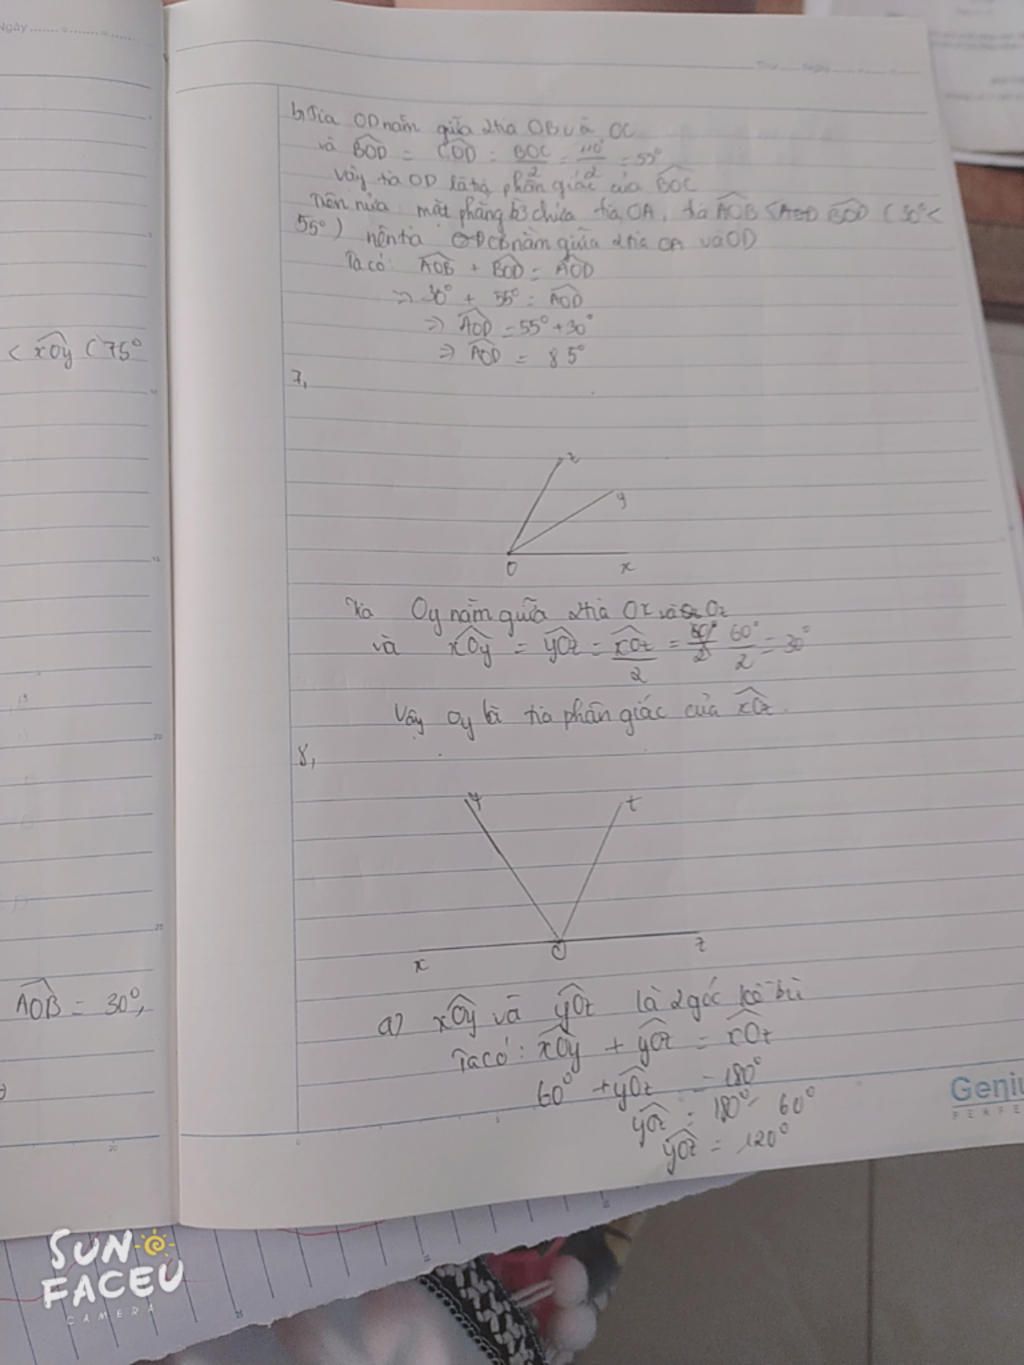 Ngày
< xOy (75°
AOB = 30°,
b, Tia OD nằm giữa 2 tia OB và OC
và BOD = COD = BOC/2 = 110°/2 = 55°
Vậy tia OD là tia phân giác của BOC
Trên nửa mặt phẳng bờ chứa tia OA, ta AOB < BOD (30° <
55°) nên tia nằm giữa 2 tia OA và OD
Ta có: AOB + BOD = AOD
=> 30° + 55° = AOD
=> AOD = 55° + 30°
=> AOD = 85°
7,
z
y
O x
Tia Oy nằm giữa 2 tia Ox và Oz
và xOy = yOz = xOz/2 = 60°/2 = 30°
Vậy Oy là tia phân giác của xOz.
8,
y t
x O z
a) xOy và yOz là 2 góc kề bù
Ta có: xOy + yOz = xOz
60° + yOz = 180°
yOz = 180° - 60°
yOz = 120°
SUN
FACEU
CAMERA